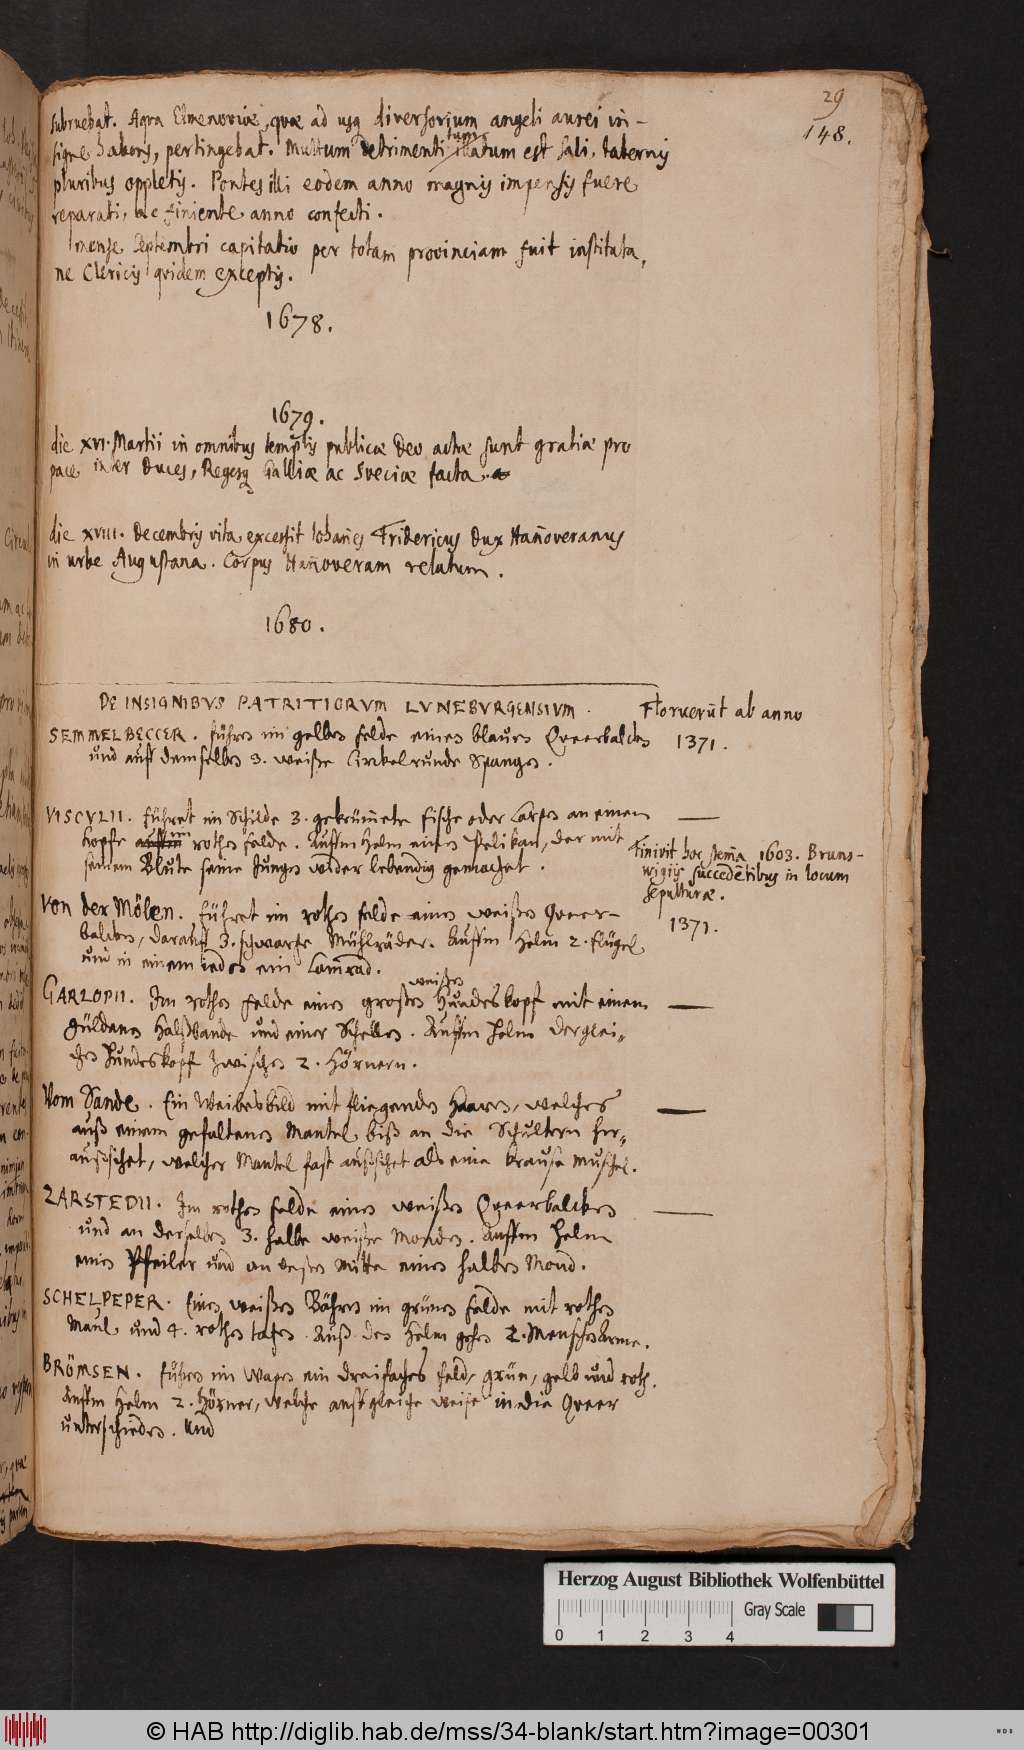 29
148.
subruebat. Aqva Elmenoviæ, qvæ ad usq diversorium angeli aurei in-
signe habens, pertingebat. Multum detrimenti tum illatum est sali, tabernis
pluribus oppletis. Pontes illi eodem anno magnis impensis fuere
reparati, ac finiente anno confecti.
mense Septembri capitatio per totam provinciam fuit instituta,
ne Clericis qvidem exceptis.
1678.
1679.
die XVI. Martii in omnibus templis publicæ Deo actæ sunt gratiæ pro
pace inter Duces, Regesq Galliæ ac Sveciæ facta.
die XVIII. Decembris vita excessit Johañes Fridericus Dux Hañoveranus
in urbe Augustana. Corpus Hañoveram relatum.
1680.
DE INSIGNIBVS PATRITIORVM LVNEBVRGENSIVM.
Floruerūt ab anno
SEMMELBECCER. führen im gelben felde einen blauen Qveerbalcken
1371.
und auff demselben 3. weiße Circkelrunde Spangen.
VISCVLII. führet im Schilde 3. gekrüm̃ete fische oder Carpen an einem
Kopffe im rothen felde. Auffm Helm einen Pelikan, der mit
seinem Blute seine Jungen wider lebendig gemachet.
Finivit hoc stem̃a 1603. Bruns-
wigiis succedētibus in locum
sepulturæ.
Von der Mölen. führet im rothen felde einen weißen Qveer-
1371.
balcken, darauff 3. schwartze Mühlräder. Auffm Helm 2. flügel
und in einem ieden ein Kam̃rad.
GARLOPII. Im rothen felde einen großen weißen Hundeskopff mit einem
güldenen Halßbande und einer Schellen. Auffm Helm derglei-
chen Hundeskopff zwischen 2. Hörnern.
Vom Sande. Ein Weibesbild mit fliegenden Haaren, welches
auß einem gefaltenen Mantel biß an die Schultern her-
außsihet, welcher Mantel fast außsihet als eine krause Muschel.
ZARSTEDII. Im rothen felde einen weißen Qveerbalcken
und an derselben 3. halbe weiße Monden. Auffm Helm
einen Pfeiler und an dessen mitte einen halben Mond.
SCHELPEPER. Einen weißen Bähren im grünen felde mit rothen
Maul und 4. rothen tatzen. Auß den Helm gehen 2. Menschen Arme.
BRÖMSEN. führen im Wapen ein dreifaches feld, grün, gelb und roth.
Auffm Helm 2. Hörner, welche auff gleiche weise in die Qveer
unterschieden. Und
Herzog August Bibliothek Wolfenbüttel
Gray Scale
0 1 2 3 4
© HAB http://diglib.hab.de/mss/34-blank/start.htm?image=00301